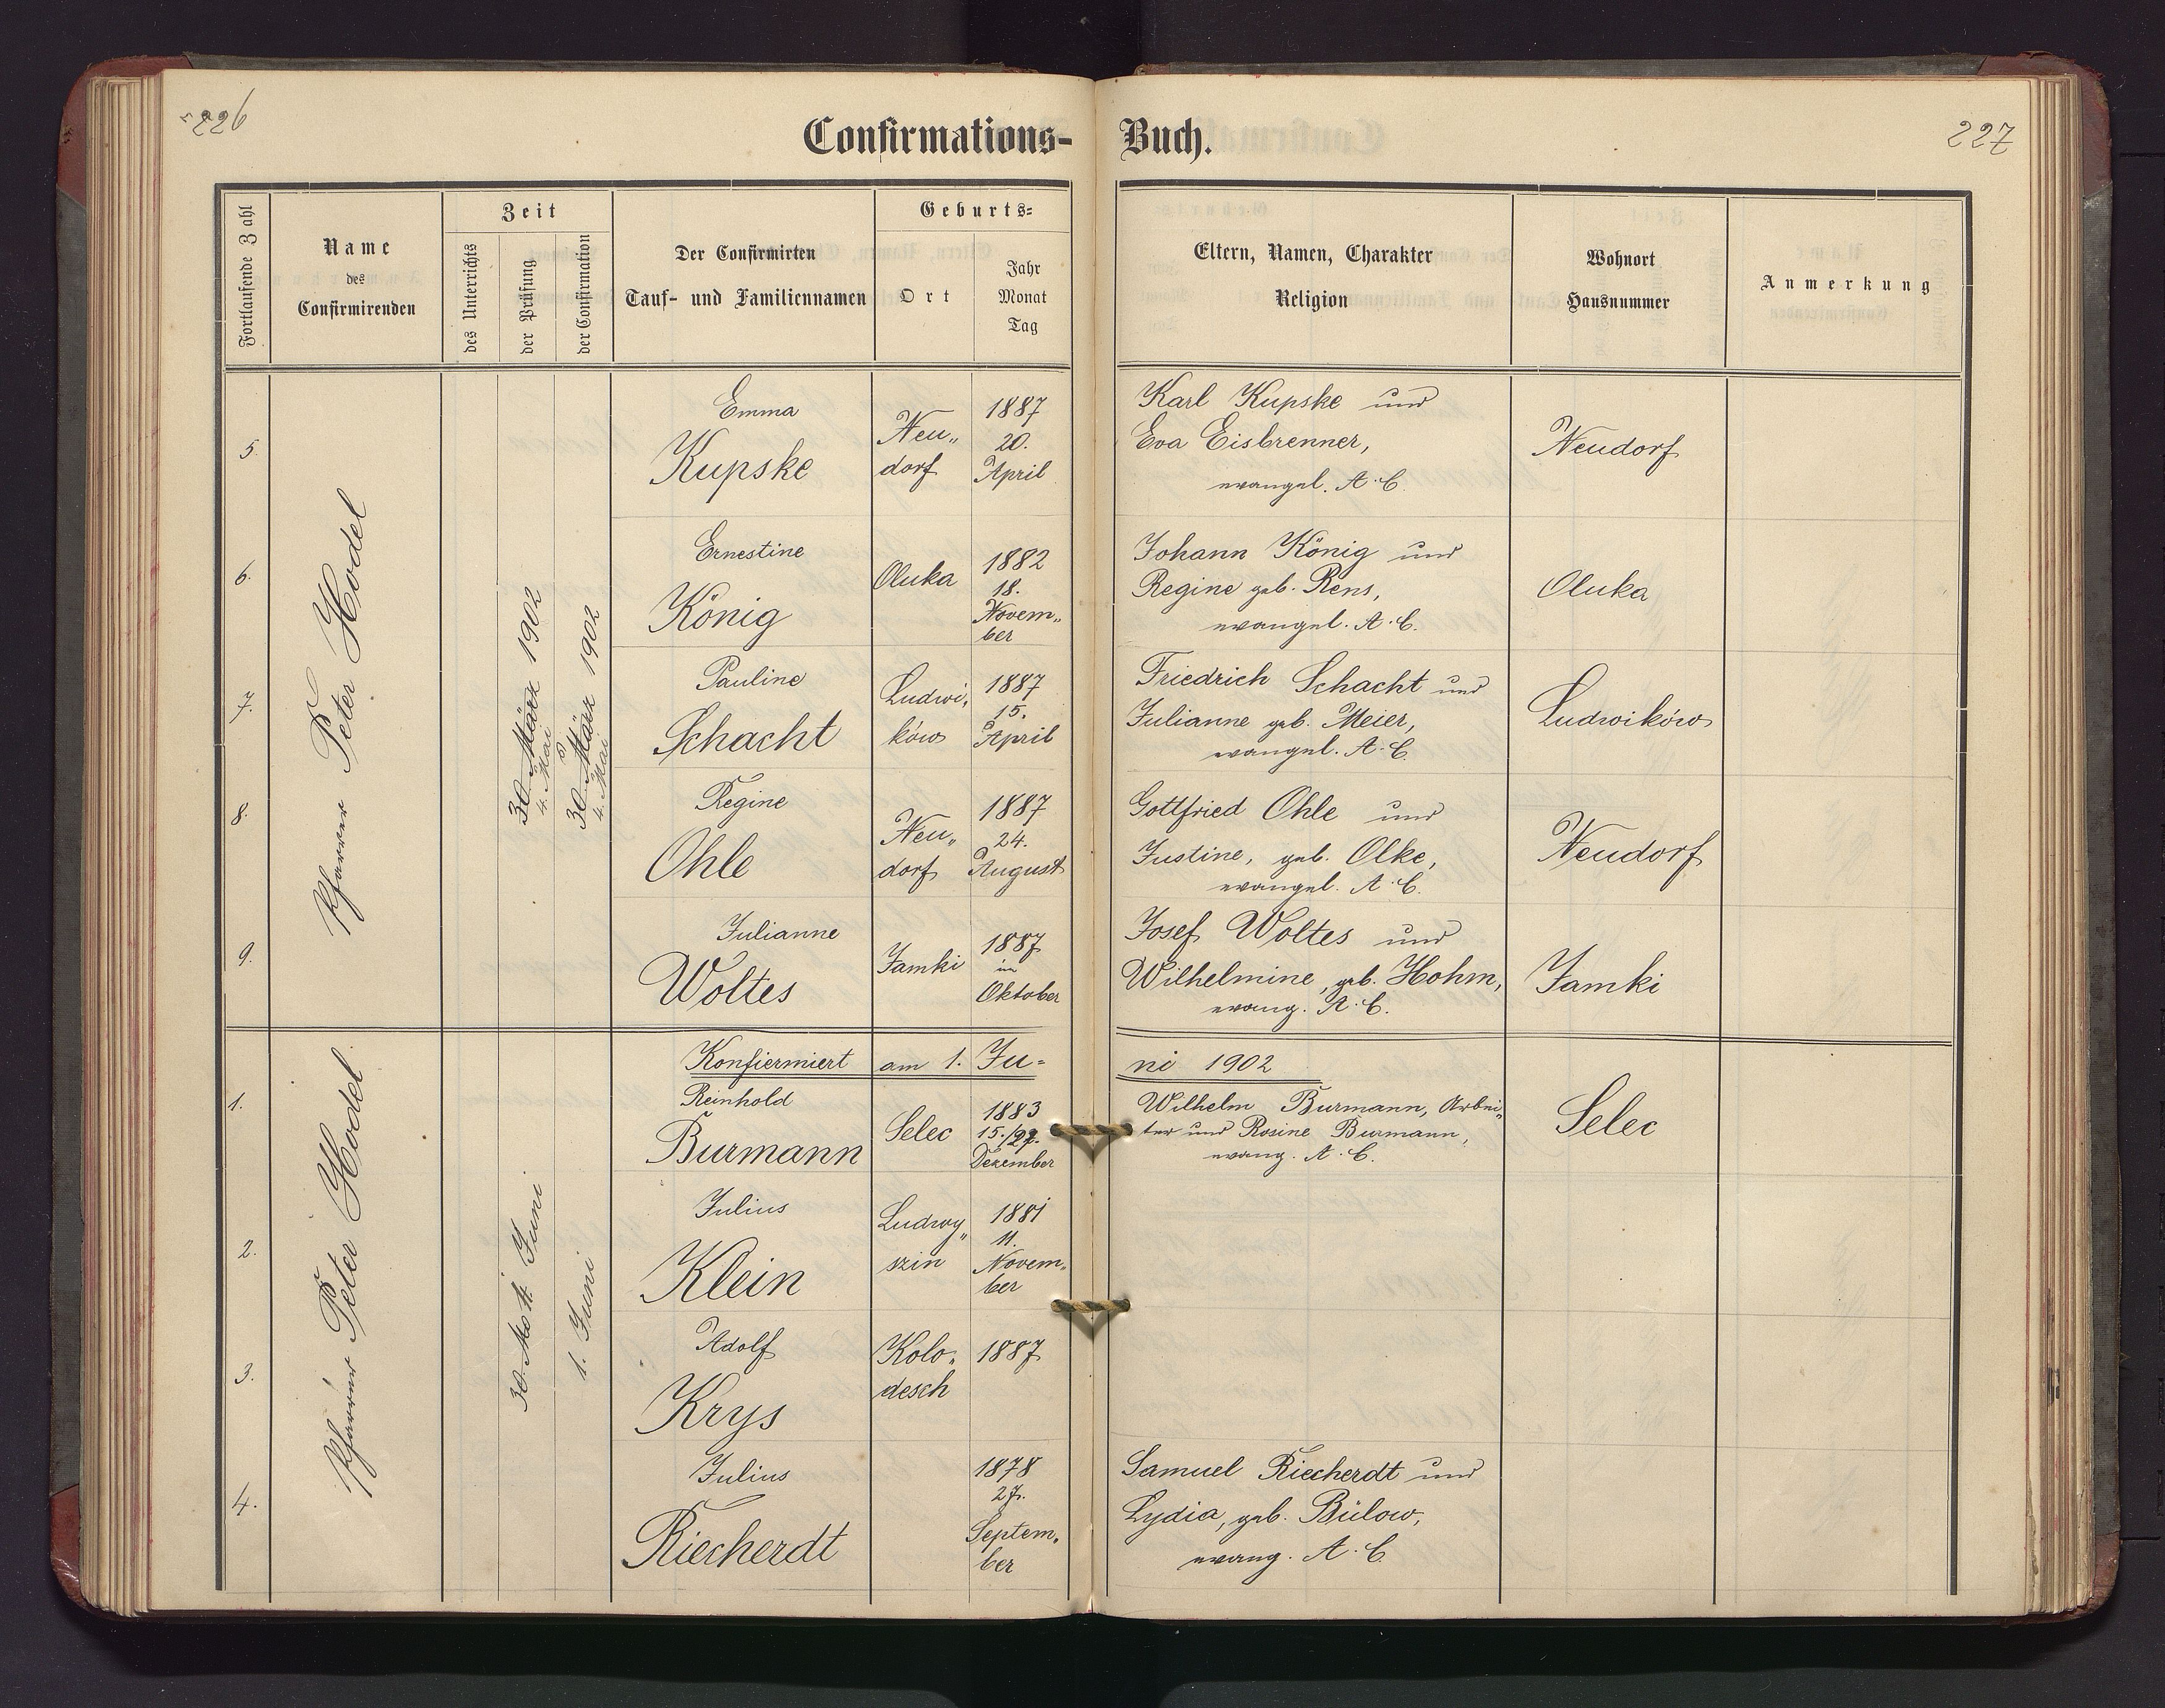 226
227
Confirmations-
Buch.
Fortlaufende Zahl
Name
des
Confirmirenden
Zeit
des Unterrichts
der Prüfung
der Confirmation
Der Confirmirten
Tauf- und Familiennamen
Geburts-
Ort
Jahr
Monat
Tag
Eltern, Namen, Charakter
Religion
Wohnort
Hausnummer
Anmerkung
Pfarrer Peter Hodel
30 März 1902
4. Mai
30 März 1902
4. Mai
5.
Emma
Kupske
Neu„
dorf
1887
20.
April
Karl Kupske und
Eva Eisbrenner,
evangel. A. C.
Neudorf
6.
Ernestine
König
Oluka
1882
18.
Novem„
ber
Johann König und
Regine geb. Rens,
evangel. A. C.
Oluka
7.
Pauline
Schacht
Ludwi„
ków
1887
15.
April
Friedrich Schacht und
Julianne geb. Meier,
evangel. A. C.
Ludwików
8.
Regine
Ohle
Neu„
dorf
1887
24.
August
Gottfried Ohle und
Justine, geb. Olke,
evangel. A. C.
Neudorf
9.
Julianne
Woltes
Jamki
1887
in
Oktober
Josef Woltes und
Wilhelmine, geb. Hohm,
evang. A. C.
Jamki
Konfiermiert am 1. Ju-
ni 1902
Pfarrer Peter Hodel
Juni
1. Juni
1.
Reinhold
Burmann
Selec
1883
15./27.
Dezember
Wilhelm Burmann, Arbei„
ter und Rosine Burmann,
evang. A. C.
Selec
2.
Julius
Klein
Ludwy„
szin
1881
11.
Novem„
ber
3.
Adolf
Krys
Kolo„
desch
1887
4.
Julius
Riecherdt
1878
27.
Septem„
ber
Samuel Riecherdt und
Lydia, geb. Bülow,
evang. A. C.